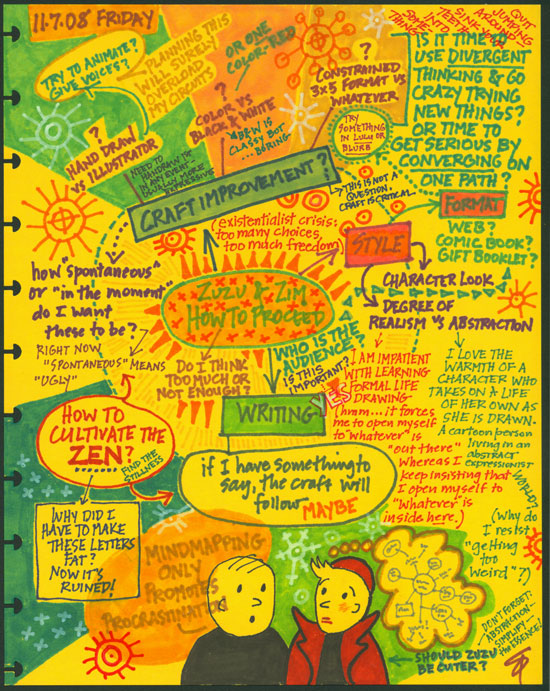 11.7.08 FRIDAY
TRY TO ANIMATE?
GIVE VOICES?
PLANNING THIS
WILL SURELY
OVERLOAD
MY CIRCUITS
OR ONE
COLOR-RED
?
COLOR VS
BLACK & WHITE
B&W IS
CLASSY BUT
... BORING
?
CONSTRAINED
3X5 FORMAT VS
WHATEVER
TRY
SOMETHING
IN LULU OR
BLURB
QUIT
JUMPING
AROUND
SINK YOUR
TEETH
INTO
SOME
THING
IS IT TIME TO
USE DIVERGENT
THINKING & GO
CRAZY TRYING
NEW THINGS?
OR TIME TO
GET SERIOUS BY
CONVERGING ON
ONE PATH?
?
HAND DRAW
VS ILLUSTRATOR
NEED TO
HANDRAW 1ST
IN ANY EVENT -
USUALLY MORE
EXPRESSIVE
CRAFT IMPROVEMENT?
THIS IS NOT A
QUESTION.
CRAFT IS CRITICAL.
FORMAT
WEB?
COMIC BOOK?
GIFT BOOKLET?
(existentialist crisis:
too many choices,
too much freedom)
STYLE
CHARACTER LOOK
DEGREE OF
REALISM VS ABSTRACTION
how "spontaneous"
or "in the moment"
do I want
these to be?
RIGHT NOW
"SPONTANEOUS" MEANS
"UGLY"
ZUZU & ZIM
HOW TO PROCEED
Do I THINK
TOO MUCH OR
NOT ENOUGH?
WHO IS THE
AUDIENCE?
IS THIS
IMPORTANT?
YES
WRITING
I AM IMPATIENT
WITH LEARNING
FORMAL LIFE
DRAWING
(hmm... it forces
me to open myself
to "whatever" is
"out there"
whereas I
keep insisting that
I open myself to
"whatever" is
inside here.)
I LOVE THE
WARMTH OF A
CHARACTER WHO
TAKES ON A LIFE
OF HER OWN AS
SHE IS DRAWN.
A cartoon person
living in an
abstract
expressionist
WORLD?
(Why do
I resist
"getting
too
weird"?)
HOW TO
CULTIVATE THE
ZEN?
FIND THE
STILLNESS
if I have something to
say, the craft will
follow. MAYBE
WHY DID I
HAVE TO MAKE
THESE LETTERS
FAT?
NOW IT'S
RUINED!
MINDMAPPING
ONLY
PROMOTES
PROCRASTINATION
DON'T FORGET:
ABSTRACTION -
SIMPLIFY -
the ESSENCE!
SHOULD ZUZU
BE CUTER?